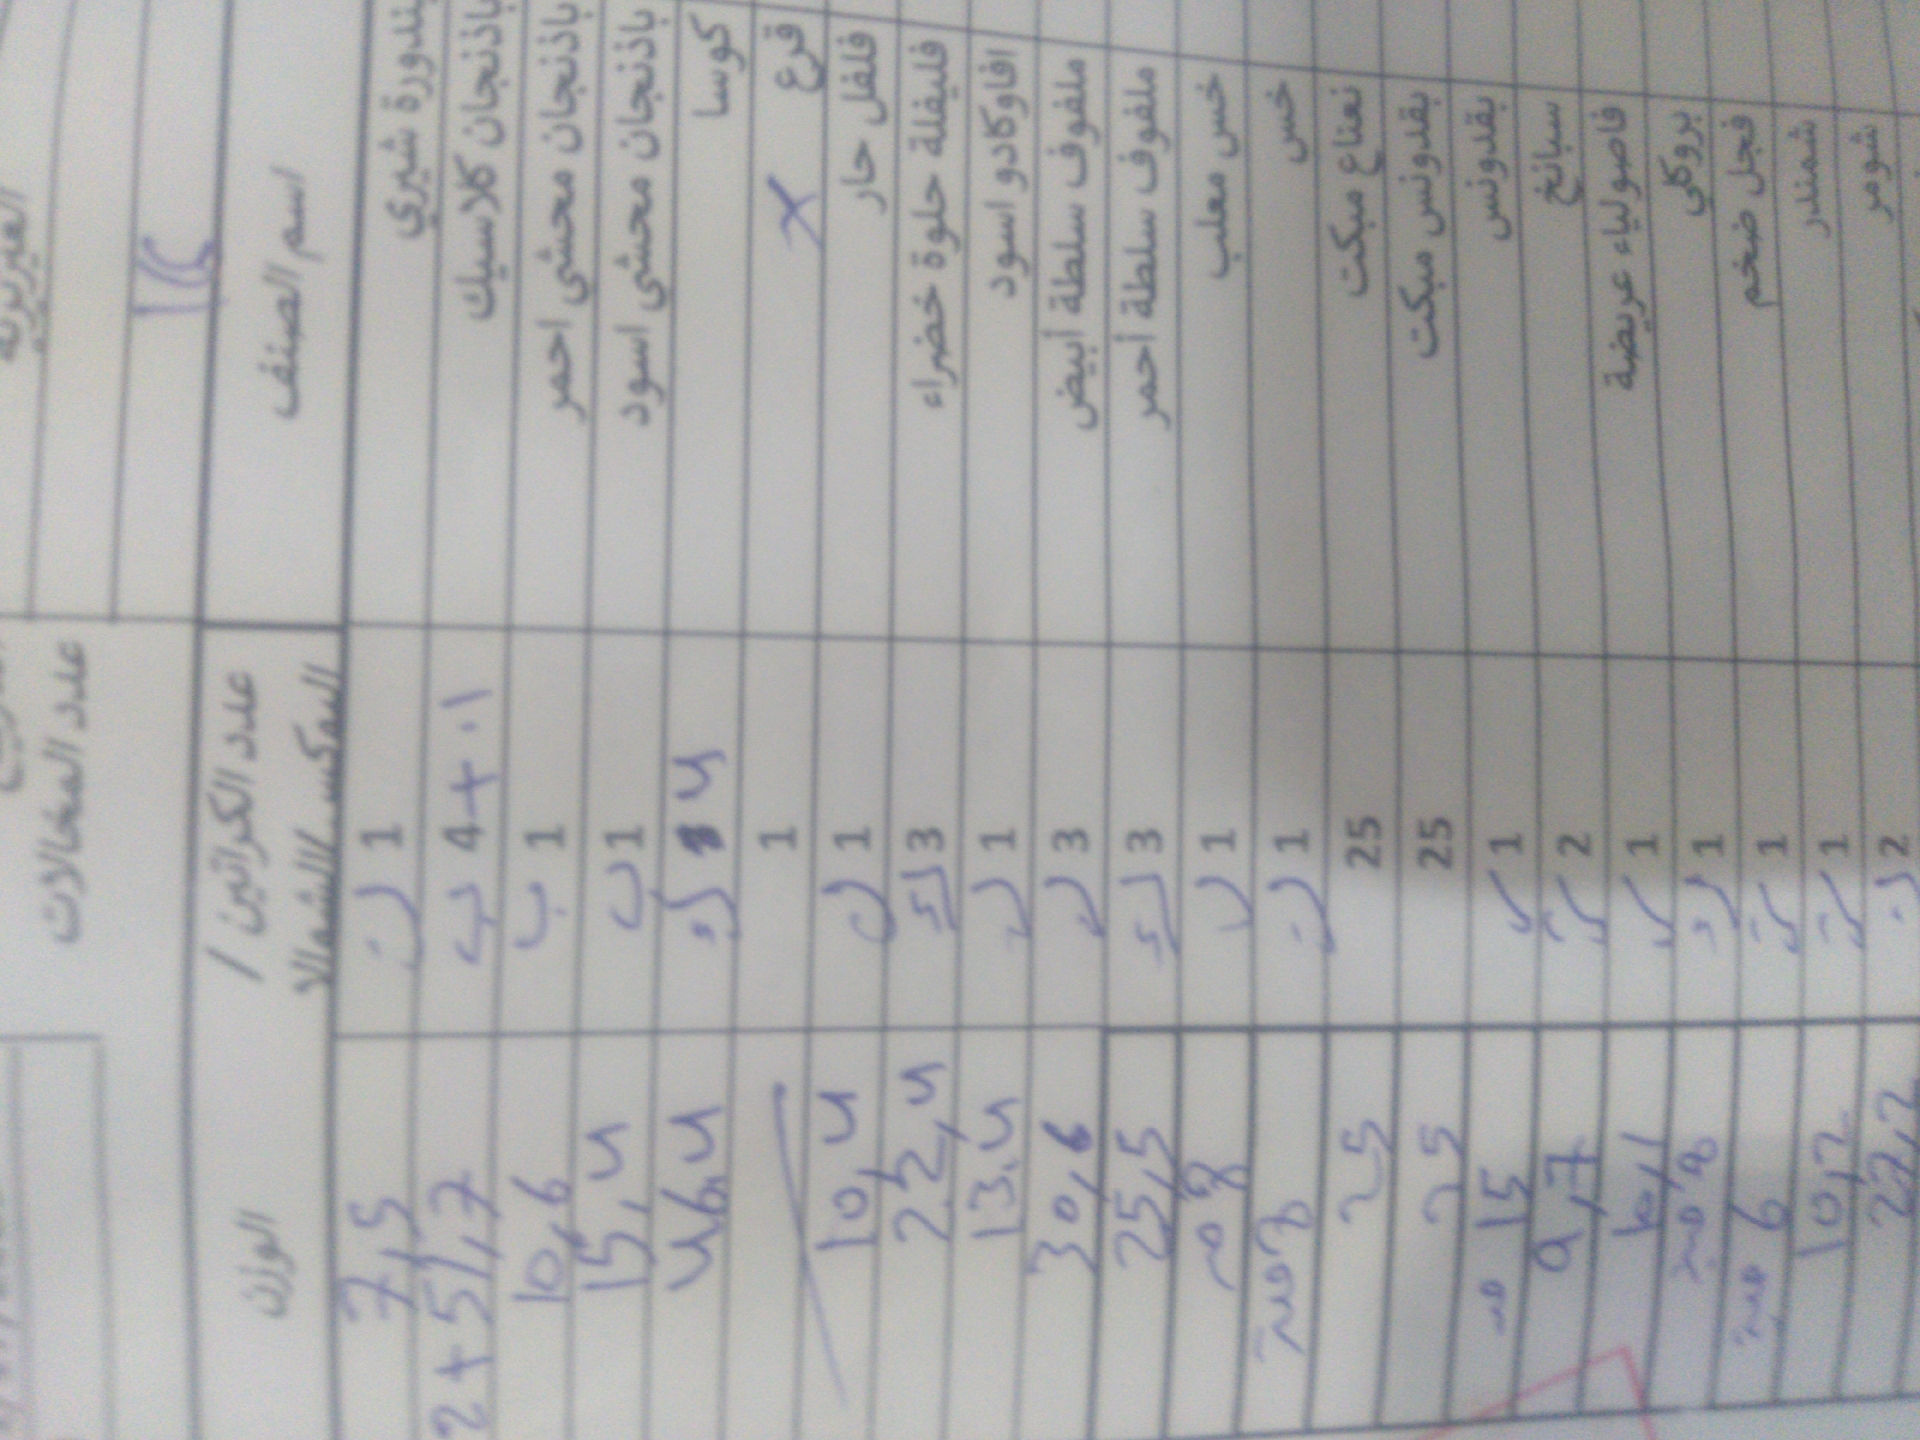 العيزرية
عدد المخالات
اسم الصنف عدد الكراتين / البوكس/الشمالا الوزن
بندورة شيري 1 7,5
باذنجان كلاسيك 4+.1 2+51,7
باذنجان محشي احمر 1 10,6
باذنجان محشي اسود 1 15,4
كوسا 4 46.4
قرع x 1
فلفل حار 1 10,4
فليفلة حلوة خضراء 3 22,4
افاوكادو اسود 1 13.4
ملفوف سلطة أبيض 3 30,6
ملفوف سلطة أحمر 3 25,5
خس معلب 1 8
خس 1 8 حبة
نعناع مبكت 25 25
بقدونس مبكت 25 25
بقدونس 1 15
سبانخ 2 9,7
فاصولياء عريضة 1 10,1
بروكلي 1 8
فجل ضخم 1 6
شمندر 1 10,2
شومر 2 22,2